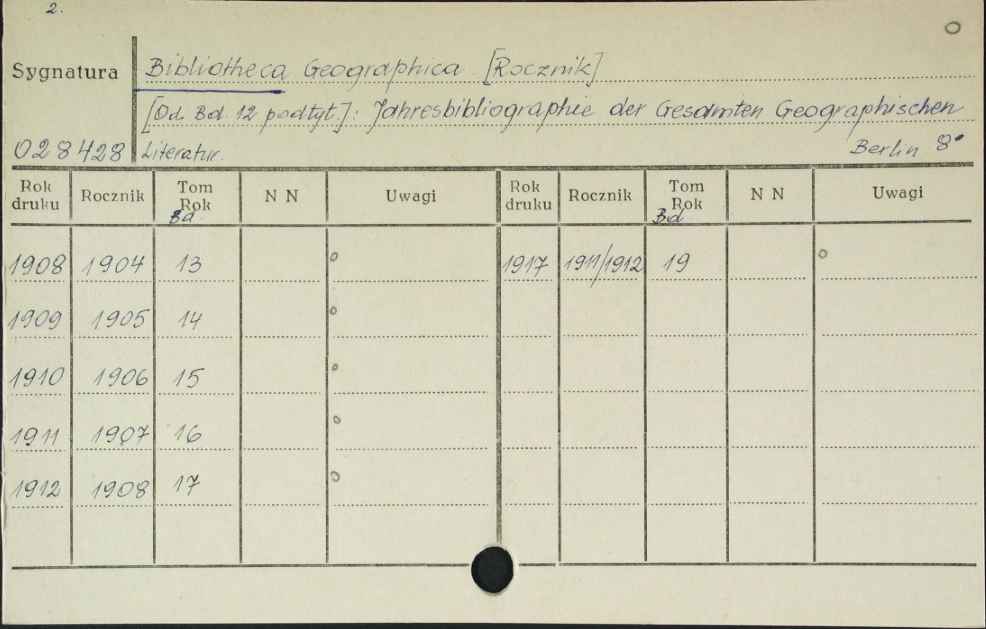 2.
Sygnatura Bibliotheca Geographica [Rocznik]
[Od. Bd. 12 podtyt.]: Jahresbibliographie der Gesamten Geographischen
028428 Literatur. Berlin 8°
Rok druku Rocznik Tom Rok Bd N N Uwagi Rok druku Rocznik Tom Rok Bd N N Uwagi
1908 1904 13 o 1917 1911/1912 19 o
1909 1905 14 o
1910 1906 15 o
1911 1907 16 o
1912 1908 17 o